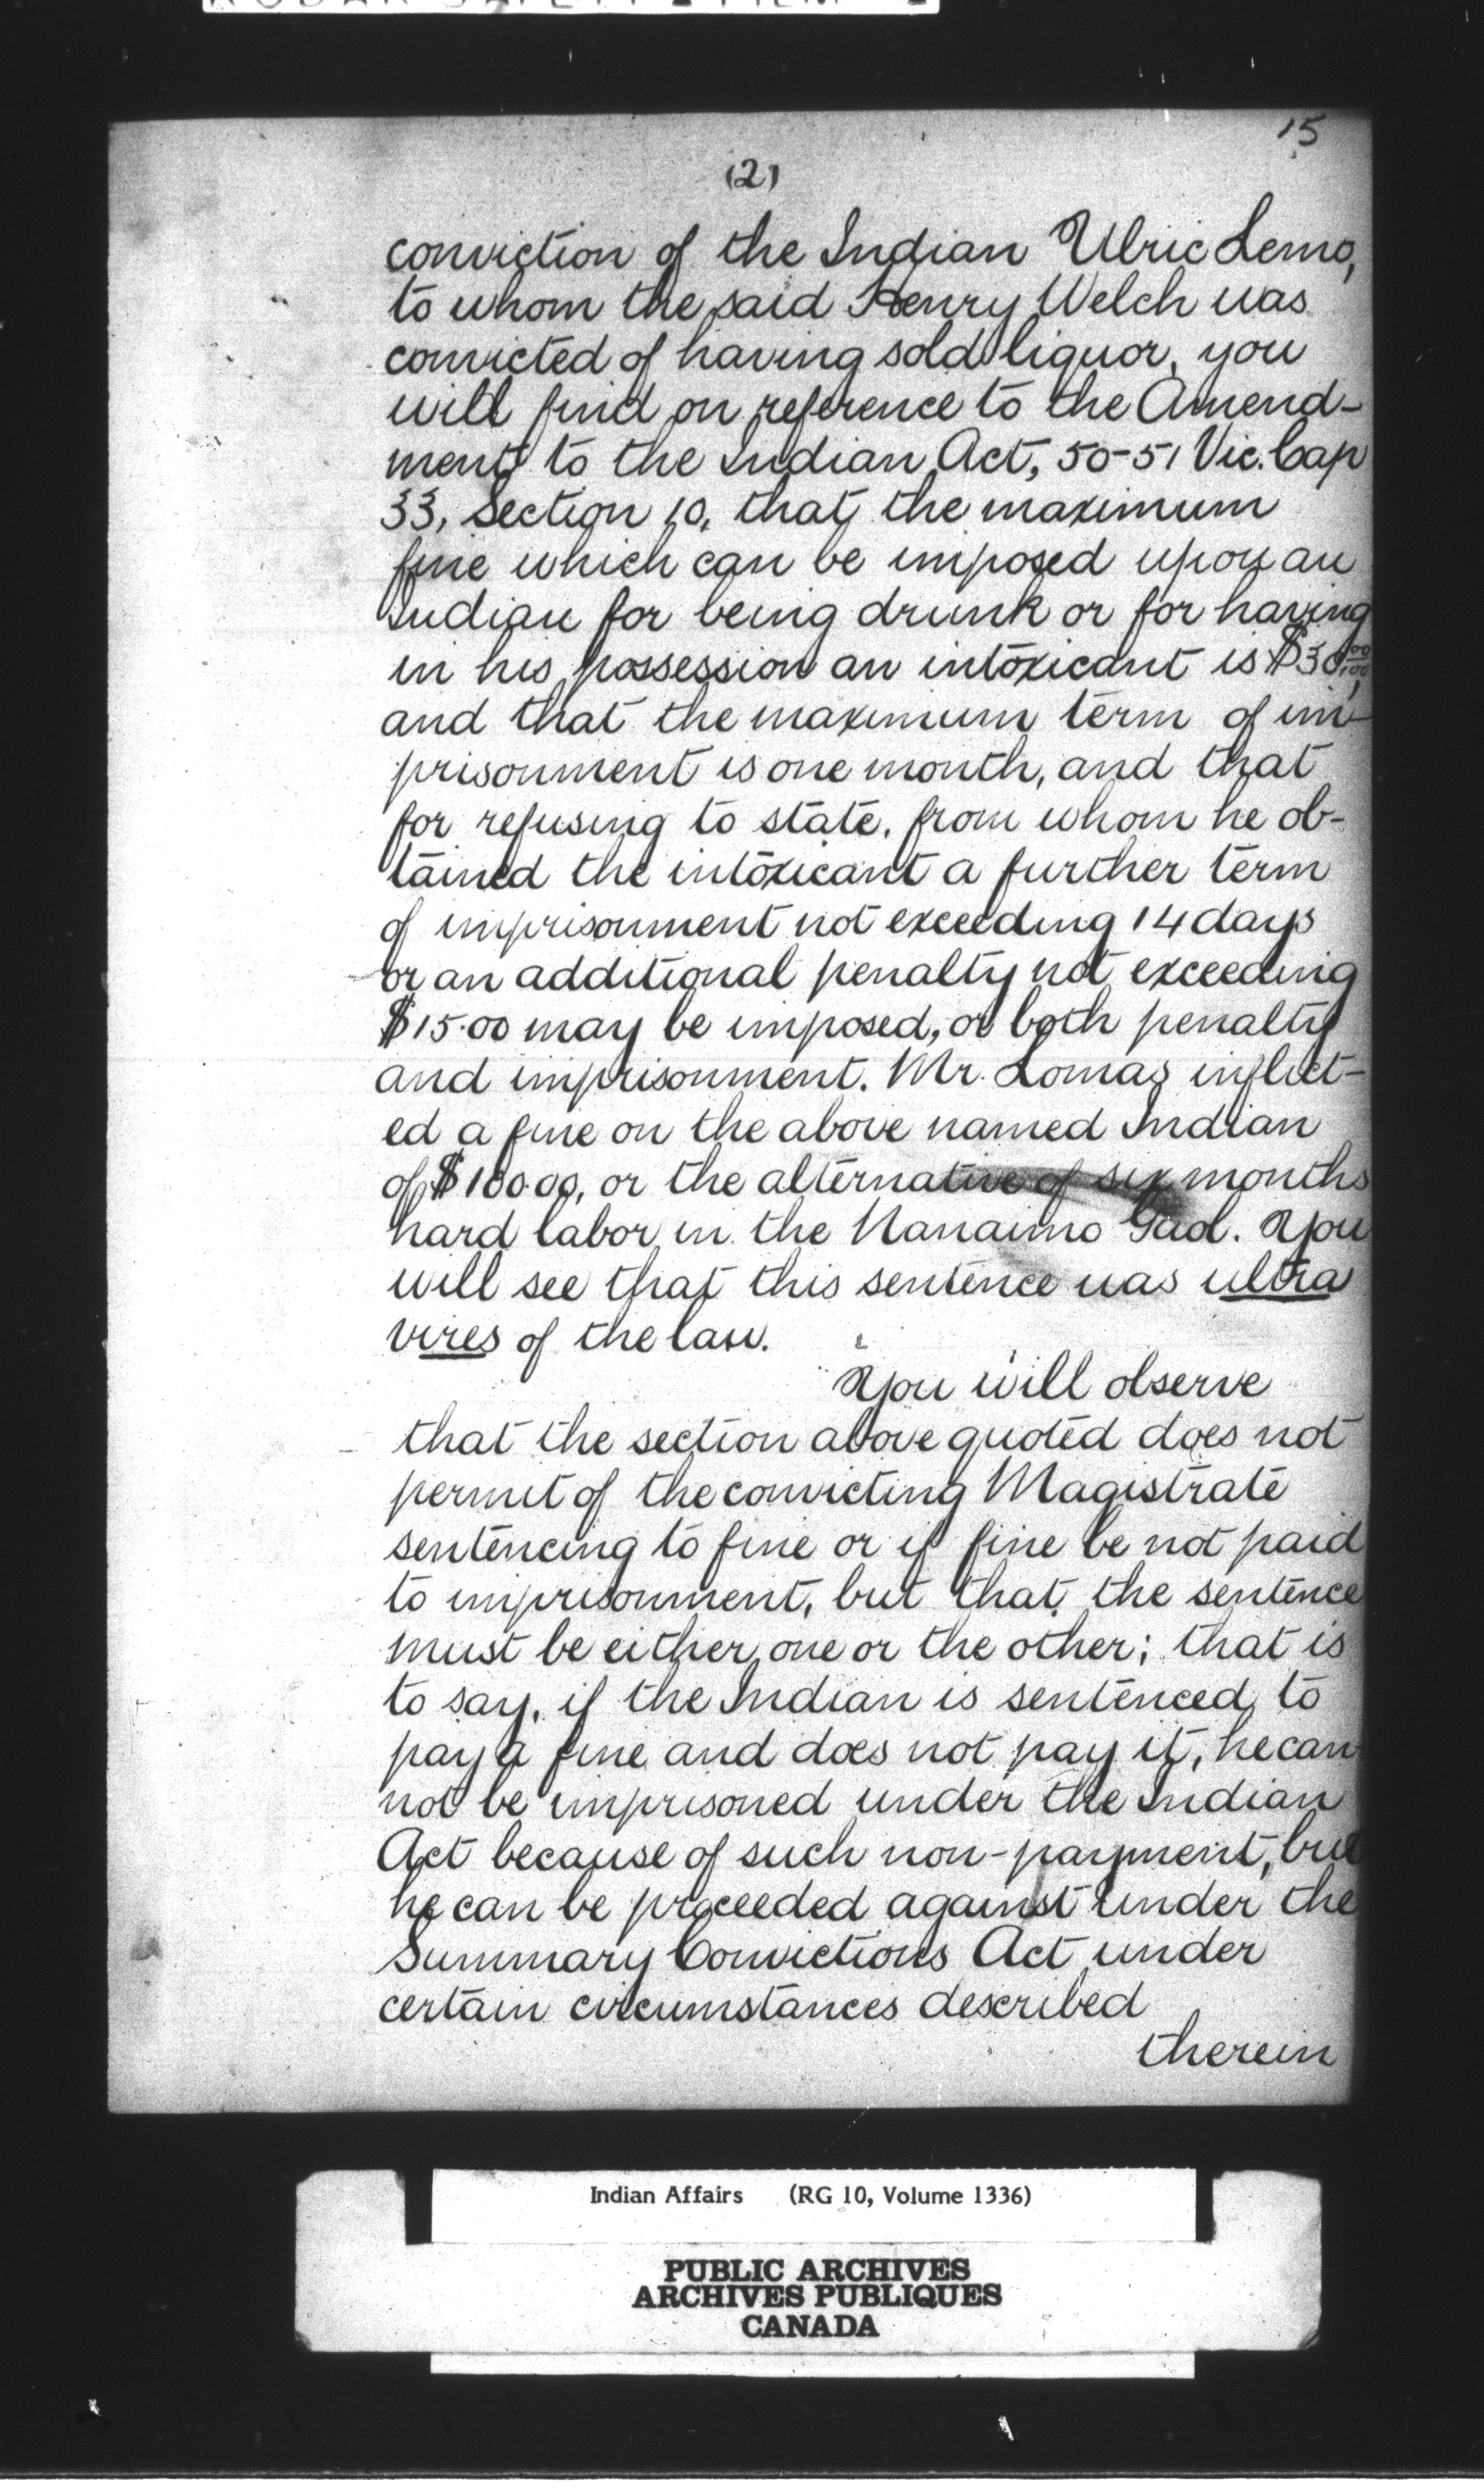 15
(2)
conviction of the Indian Ulric Lemo,
to whom the said Henry Welch was
convicted of having sold liquor, you
will find on reference to the Amend-
ment to the Indian Act, 50-51 Vic. Cap
33, Section 10, that the maximum
fine which can be imposed upon an
Indian for being drunk or for having
in his possession an intoxicant is $30.00,
and that the maximum term of im-
prisonment is one month, and that
for refusing to state, from whom he ob-
tained the intoxicant a further term
of imprisonment not exceeding 14 days
or an additional penalty not exceeding
$15.00 may be imposed, or both penalty
and imprisonment. Mr. Lomas inflict-
ed a fine on the above named Indian
of $100.00, or the alternative of six months
hard labor in the Nanaimo Gaol. You
will see that this sentence was ultra
vires of the law.
You will observe
that the section above quoted does not
permit of the convicting Magistrate
sentencing to fine or if fine be not paid
to imprisonment, but that the sentence
must be either one or the other; that is
to say, if the Indian is sentenced to
pay a fine and does not pay it, he can
not be imprisoned under the Indian
Act because of such non-payment, but
he can be proceeded against under the
Summary Convictions Act under
certain circumstances described
therein
Indian Affairs (RG 10, Volume 1336)
PUBLIC ARCHIVES
ARCHIVES PUBLIQUES
CANADA